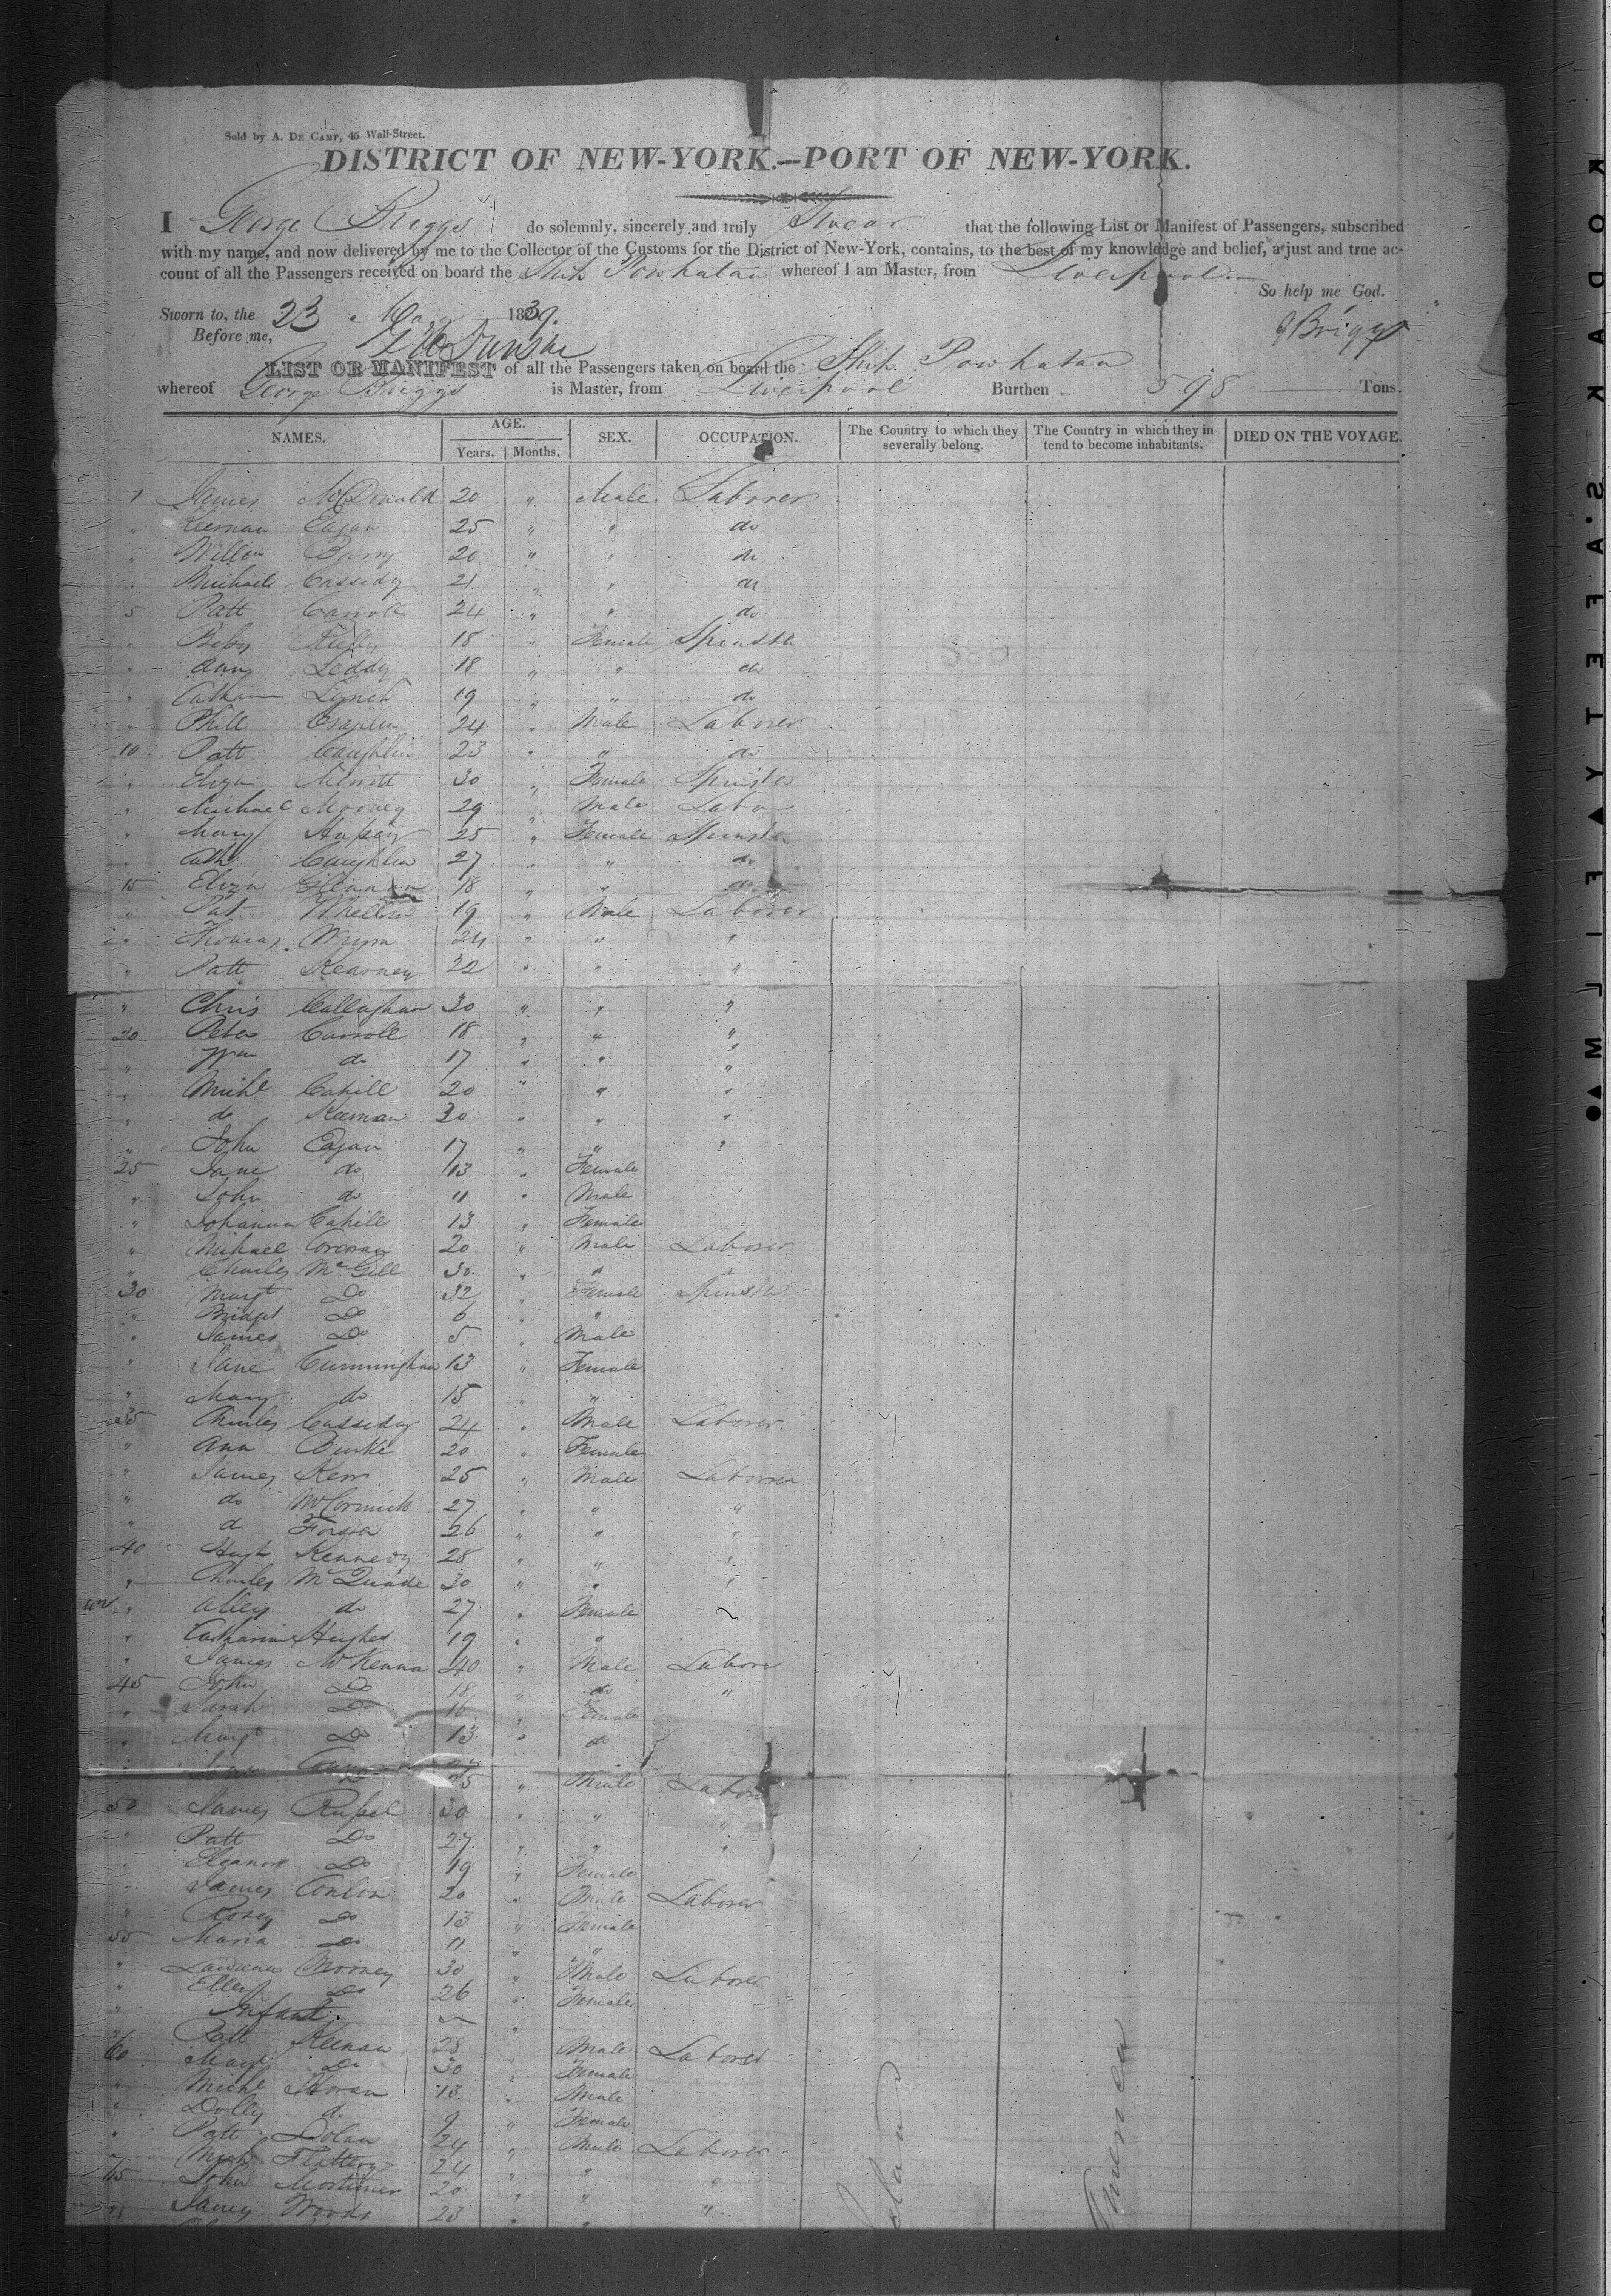 Sold by A. De Camp, 45 Wall-Street.
DISTRICT OF NEW-YORK.—PORT OF NEW-YORK.
I George Briggs do solemnly, sincerely and truly Swear that the following List or Manifest of Passengers, subscribed
with my name, and now delivered by me to the Collector of the Customs for the District of New-York, contains, to the best of my knowledge and belief, a just and true ac-
count of all the Passengers received on board the Ship Powhatan whereof I am Master, from Liverpool.
So help me God.
Sworn to, the 23 May 1839.
Before me,
G Briggs
LIST OR MANIFEST of all the Passengers taken on board the Ship Powhatan
whereof George Briggs is Master, from Liverpool Burthen 598 Tons.
NAMES. AGE. Years. Months. SEX. OCCUPATION. The Country to which they severally belong. The Country in which they intend to become inhabitants. DIED ON THE VOYAGE.
1 James McDonald 20 " Male Laborer
" Keernan Eagan 25 " " do
" Barry 20 " " do
" Michael Cassidy 21 " " do
5 Patt Carroll 24 " " do
" 18 " Female Spinstr
" Ann Leddy 18 " " do
" Lynch 19 " " do
" Phill 24 " Male Laborer
10 Patt Caughlin 23 " " do
" Eliza 30 " Female Spinster
" Michael Mooney 29 " Male Labo
" Mary 25 " Female Spinster
" Cath Caughlin 27 " " do
15 Eliza 18 " " do
" Pat Whellen 19 " Male Laborer
" Thomas 24 " " "
" Patt Kearney 22 " " "
" Chris Callaghan 30 " " "
20 Peter Carroll 18 " " "
" Wm do 17 " " "
" Michl Cahill 20 " " "
" do Keernan 30 " " "
" John Eagan 17 " " "
25 Jane do 13 " Female
" John do 11 " Male
" Johanna Cahill 13 " Female
" Michael Corcoran 20 " Male Laborer
" Charles McGill 30 " " "
30 Margt Do 32 " Female Spinster
" Bridget Do 6 " "
" James Do 5 " Male
" Jane Cunningham 13 " Female
" Mary do 15 " "
35 Charles Cassiday 24 " Male Laborer
" Ann 20 " Female
" James Kerr 25 " Male Laborer
" do McCormick 27 " " "
" d Forster 26 " " "
40 Hugh Kennedy 28 " " "
" Charles McQuade 30 " " "
" Alley do 27 " Female
" Catharine Hughes 19 " "
" James McKenna 40 " Male Labore
45 John Do 18 " do "
" Sarah Do 16 " Female
" Margt Do 13 " do
35 " Male Labore
50 James Russel 30 " " "
" Patt Do 27 " " "
" Eleanor Do 19 " Female
" James Conlon 20 " Male Laborer
" Rosey Do 13 " Female
55 Maria Do 11 " "
" Lawrence Mooney 30 " Male Laborer
" Ellen Do 26 " Female
" Infant
" Patt Keenan 28 Male Laborer
60 Do 30 " Female
" Michl Horan 13 " Male
" Dolly d. 9 " Female
" Patt Dolan 24 " Male Laborer
" Flattery 24 " " "
65 John Mortimer 20 " " "
" James Woods 23 " "
Ireland
America
KODAK SAFETY FILM